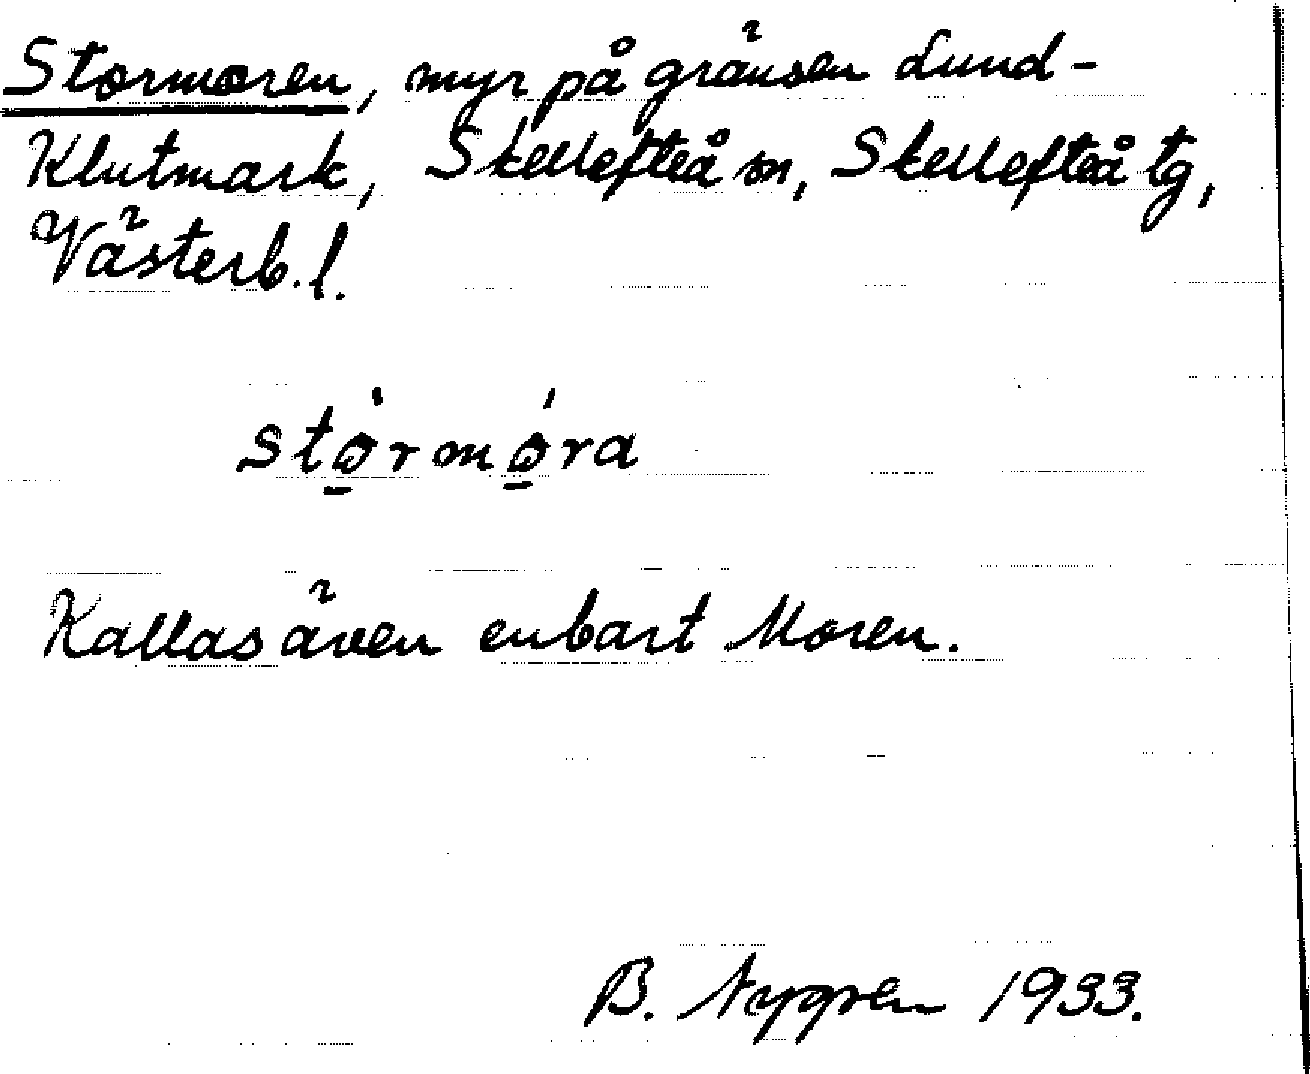 Stormoren, myr på gränsen Lund-
Klutmark, Skellefteå sn, Skellefteå tg,
Västerb. l.
stω̱̍rmώ̱ra
Kallas även enbart Moren.
B. Nygren 1933.